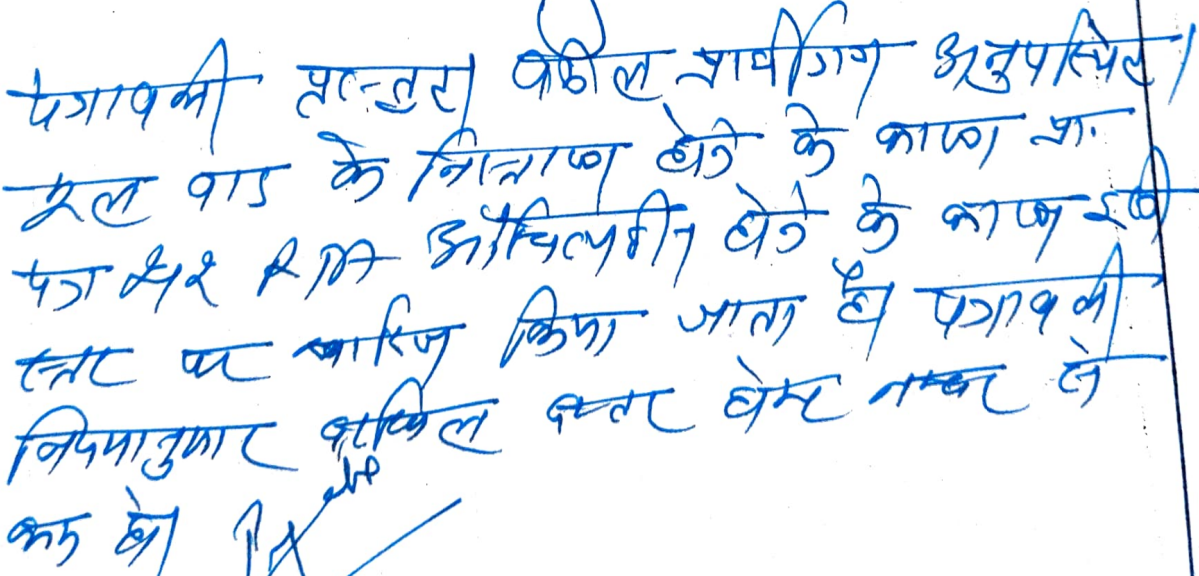 पत्रावली प्रस्तुत। वकील प्रार्थीगण अनुपस्थित।
मूल वाद के निस्तारण होने के कारण प्रा.
पत्र 212 RTA औचित्यहीन होने के कारण इसी
स्तर पर खारिज किया जाता है। पत्रावली
नियमानुसार दाखिल दफ्तर होकर नम्बर से
कम हो।